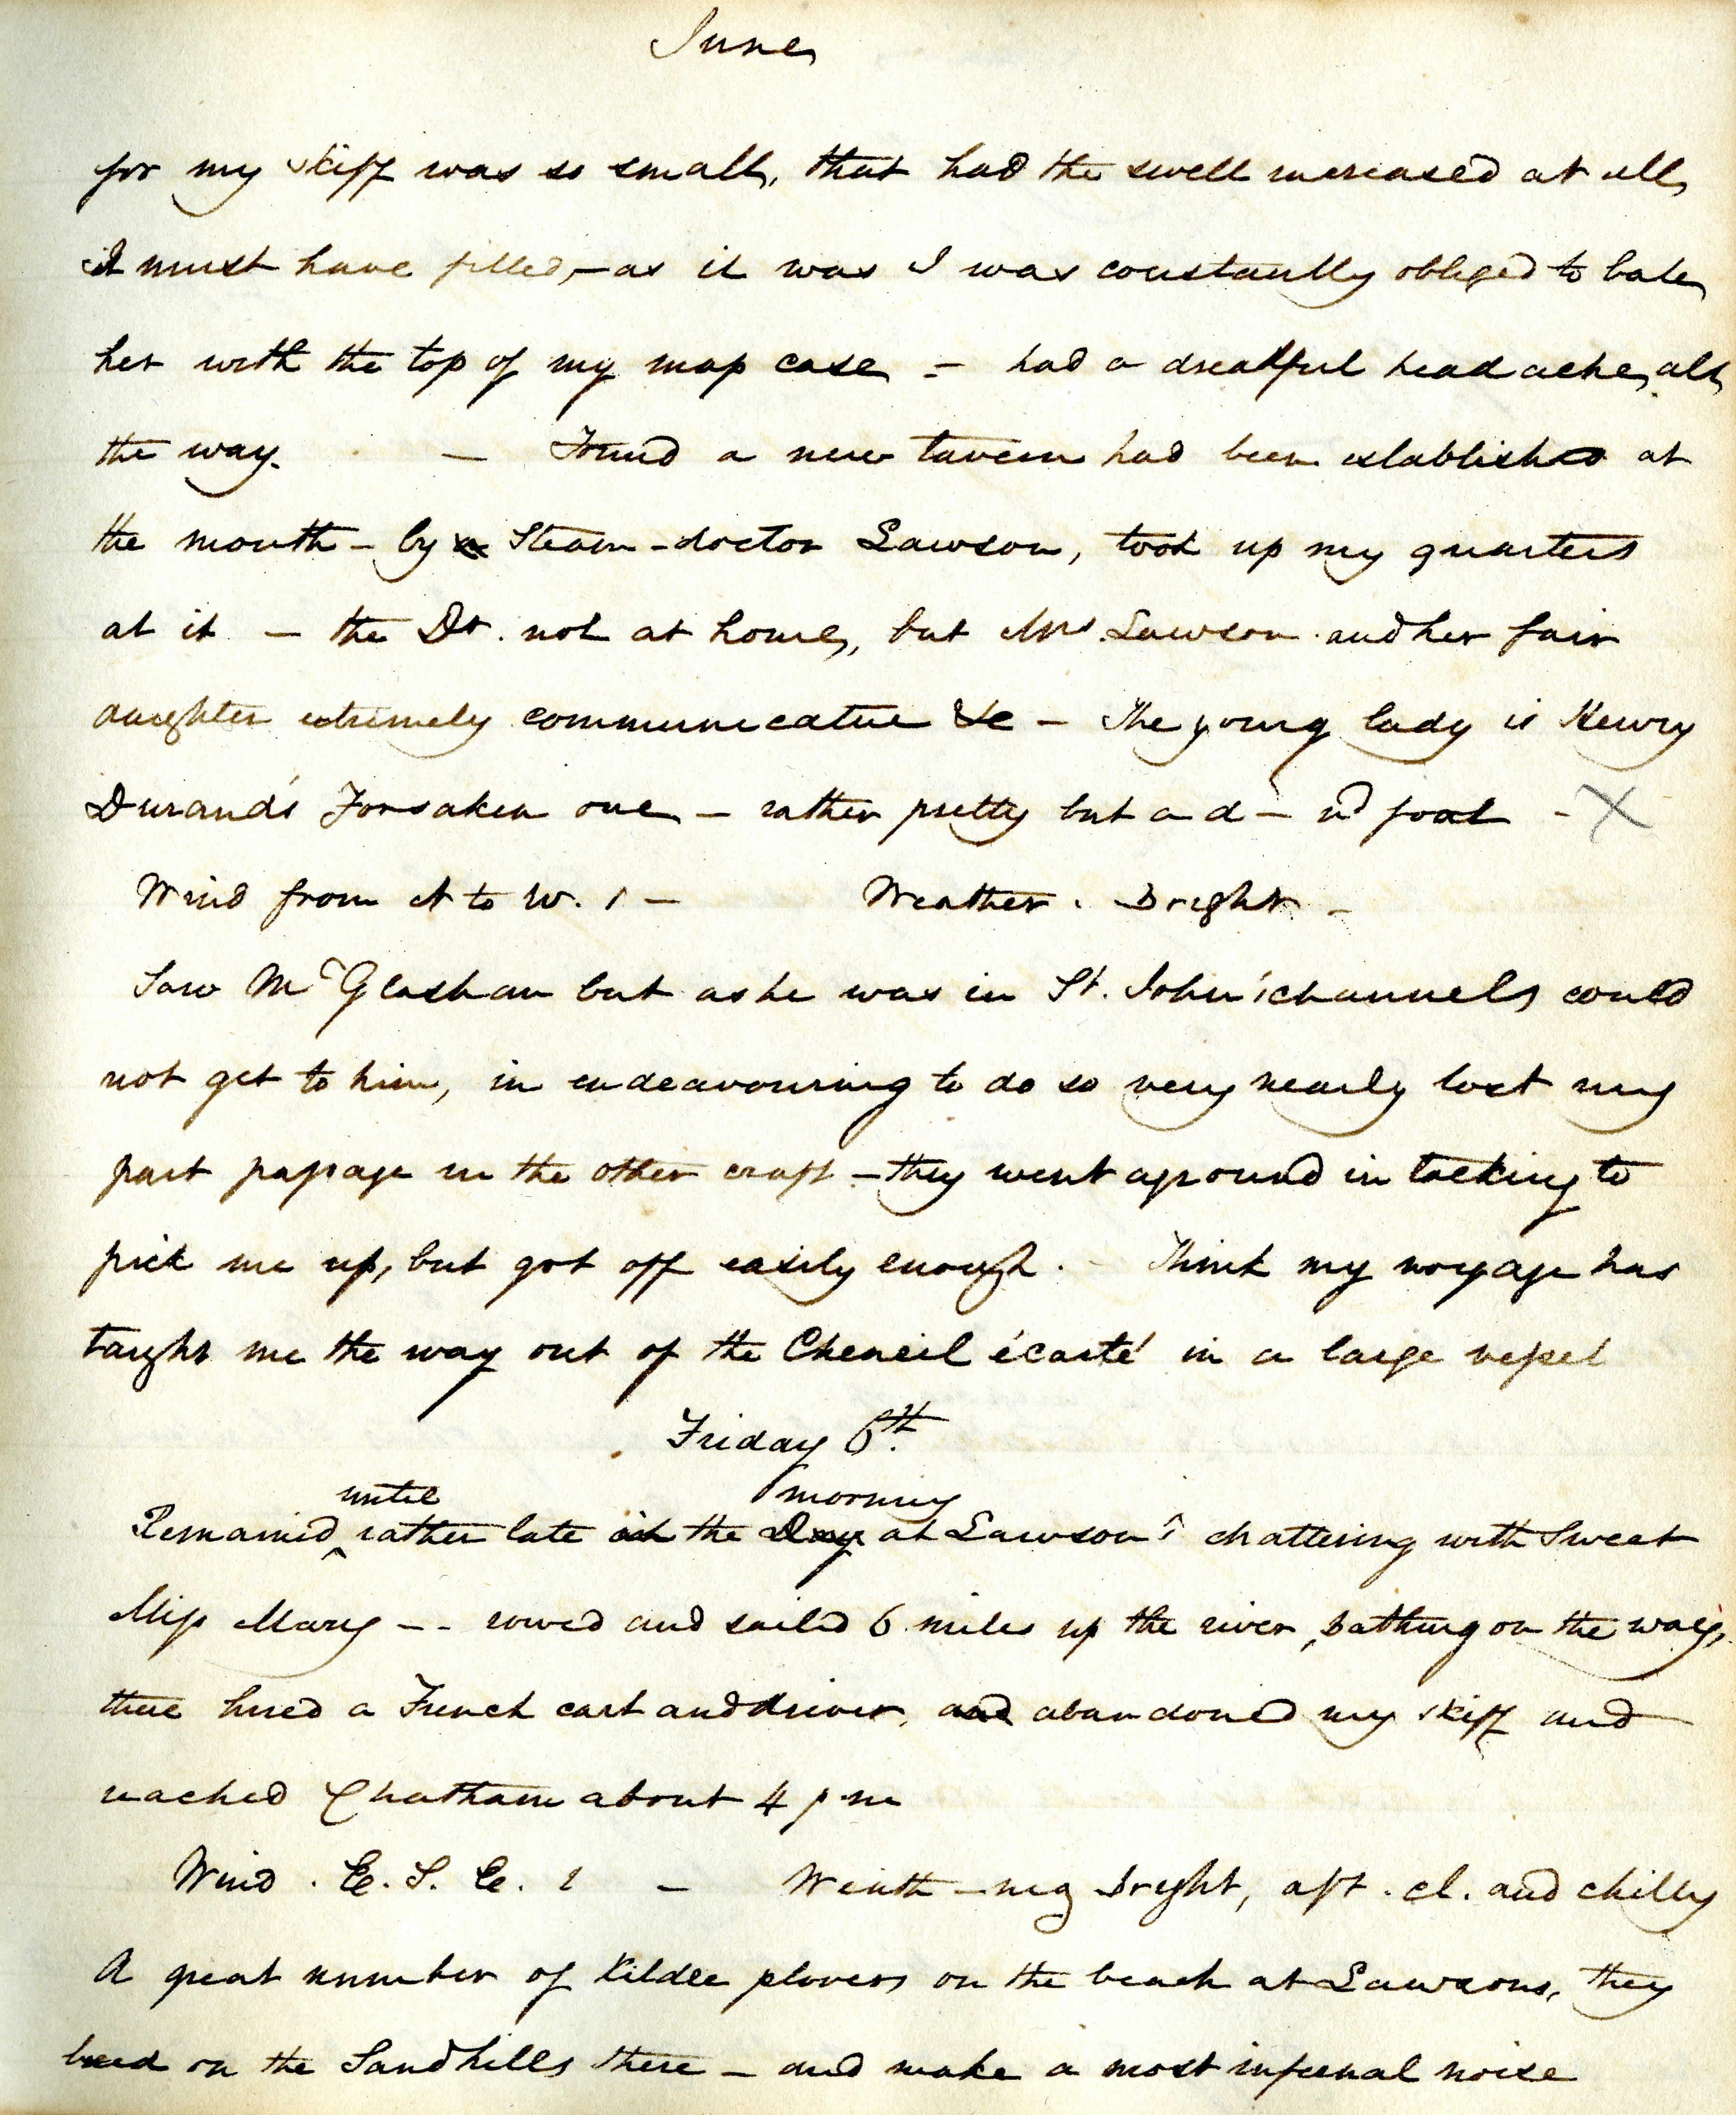 June
for my skiff was so small, that had the swell increased at all
it must have filled, – as it was I was constantly obliged to bale
her with the top of my map case – had a dreadful head ache, all
the way. – Found a new tavern had been established at
the mouth – by Steam-doctor Lawson, took up my quarters
at it – the Dr. not at home, but Mrs. Lawson and her fair
daughter extremely communicative &c – The young lady is Henry
Durand's Forsaken one – rather pretty but a d–nd fool –
Wind from N to W. 1 – Weather. Bright –
Saw McGlashan but as he was in St. John's channels could
not get to him, in endeavouring to do so very nearly lost my
part passage in the other craft – they went aground in tacking to
pick me up, but got off easily enough. – Think my voyage has
taught me the way out of the Cheneil écarté in a large vessel
Friday 6th.
Remained until rather late in the Day morning at Lawson's chattering with Sweet
Miss Mary – – rowed and sailed 6 miles up the river, bathing on the way,
there hired a French cart and driver, and abandoned my skiff and
reached Chatham about 4 p.m
Wind. E. S. E. 1 – Weath – mg bright, aft. cl. and chilly
A great number of Kildee plovers on the beach at Lawsons, they
breed on the Sandhills there – and make a most infernal noise